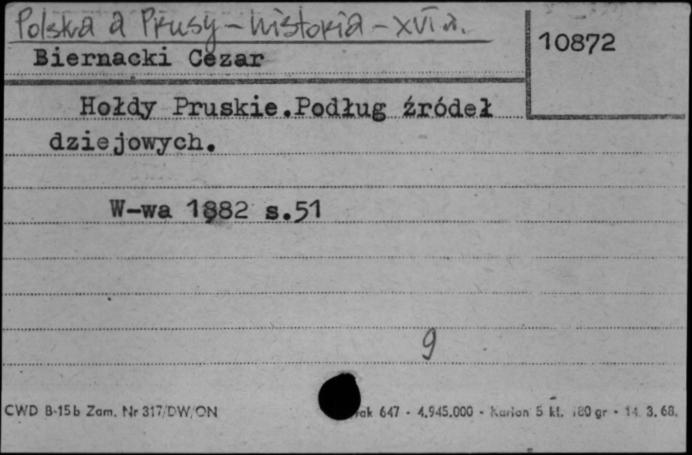 Polska a Prusy - historia - XVI w.
Biernacki Cezar
10872
Hołdy Pruskie.Podług źródeł
dziejowych.
W-wa 1882 s.51
9
CWD B-15b Zam. Nr 317/DW/ON
ak 647 - 4.945.000 - Karton 5 kl. 180 gr - 14. 3. 68.